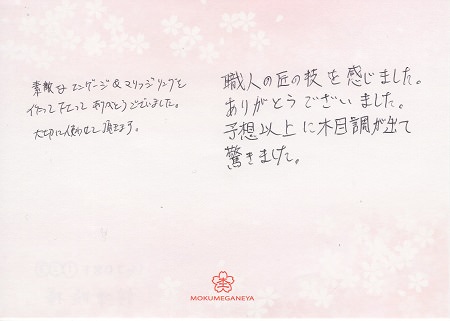 素敵なエンゲージ&マリッジリングを
作って下さって ありがとうございました。
大切に使わせて頂きます。
職人の匠の技を感じました。
ありがとうございました。
予想以上に木目調が出て
驚きました。
MOKUMEGANEYA